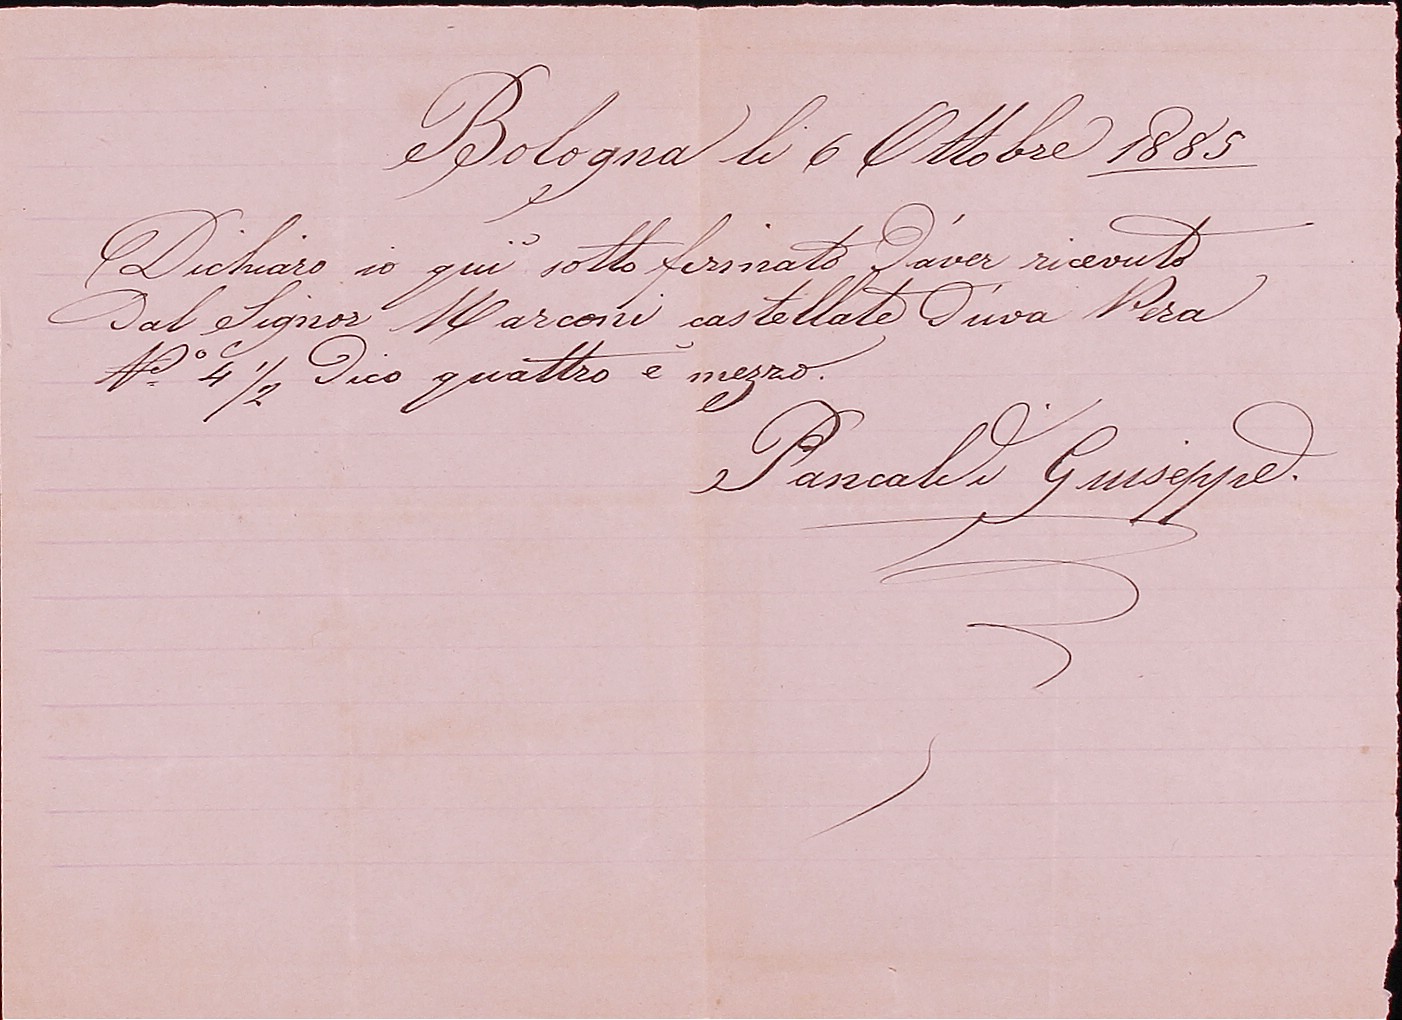 Bologna li 6 Ottobre 1885
Dichiaro io quì sotto firmato d'aver ricevuto
dal Signor Marconi castellate d'uva Nera
N.º 4 1/2 dico quattro e mezzo.
Pancaldi Giuseppe.